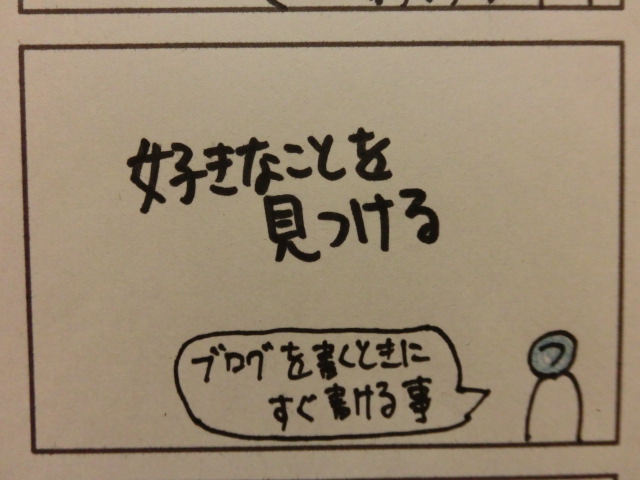 好きなことを
見つける
ブログを書くときに
すぐ書ける事
つ